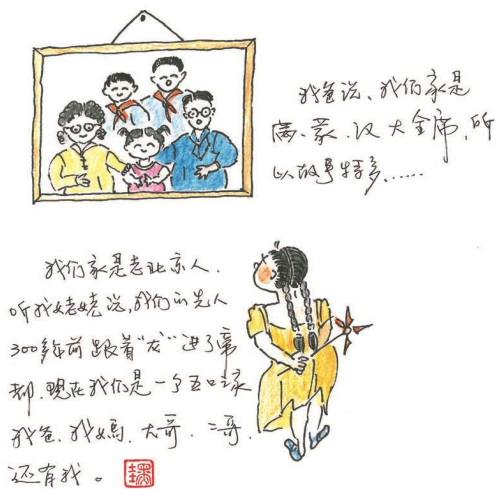 我爸说、我们家是
满、蒙、汉大全席,所
以故事特多……
我们家是老北京人.
听我姥姥说,我们的先人
300多年前跟着“龙”进了帝
都.现在我们是一个五口之家
我爸、我妈、大哥、二哥、
还有我。